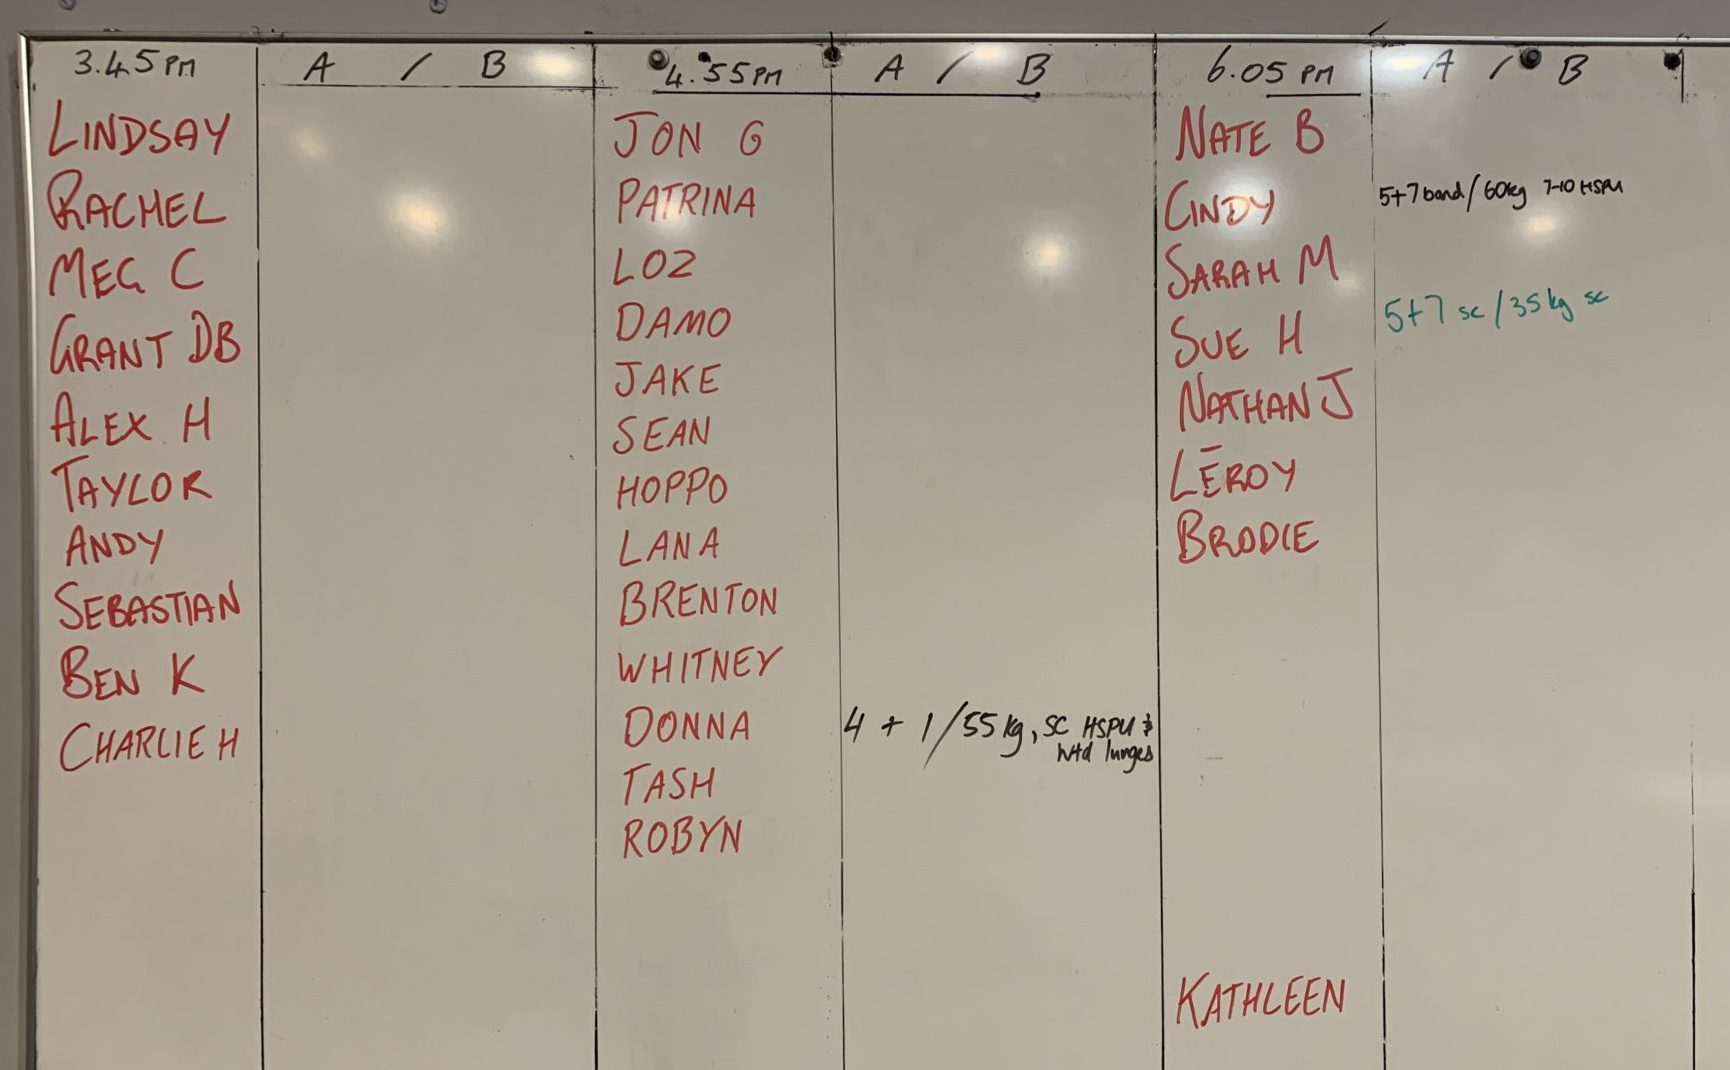 3.45PM
A / B
LINDSAY
RACHEL
MEG C
GRANT DB
ALEX H
TAYLOR
ANDY
SEBASTIAN
BEN K
CHARLIE H
4.55PM
A / B
JON G
PATRINA
LOZ
DAMO
JAKE
SEAN
HOPPO
LANA
BRENTON
WHITNEY
DONNA 4 + 1/55kg, SC HSPU &
wtd lunges
TASH
ROBYN
6.05 PM
A / B
NATE B
CINDY 5+7 band/60kg 7-10 HSPU
SARAH M
SUE H 5+7 sc/35kg sc
NATHAN J
LEROY
BRODIE
KATHLEEN